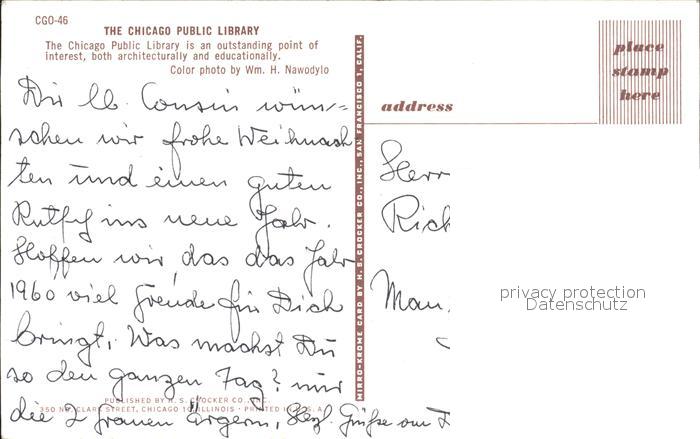 CGO-46
THE CHICAGO PUBLIC LIBRARY
The Chicago Public Library is an outstanding point of
interest, both architecturally and educationally.
Color photo by Wm. H. Nawodylo
Dir lb. Cousin wün-
schen wir frohe Weihnach
ten und einen guten
Rutsch ins neue Jahr.
Hoffen wir das das Jahr
1960 viel Freude für Dich
bringt, Was machst Du
so den ganzen Tag? nur
die 2 frauen Ärgern, Herzl. Grüße von
PUBLISHED BY H. S. CROCKER CO., INC.
350 NO. CLARK STREET, CHICAGO 10, ILLINOIS · PRINTED IN U.S.A.
MIRRO-KROME CARD BY H. S. CROCKER CO., INC., SAN FRANCISCO 1, CALIF.
place
stamp
here
address
Herr
Rich
Man
privacy protection
Datenschutz